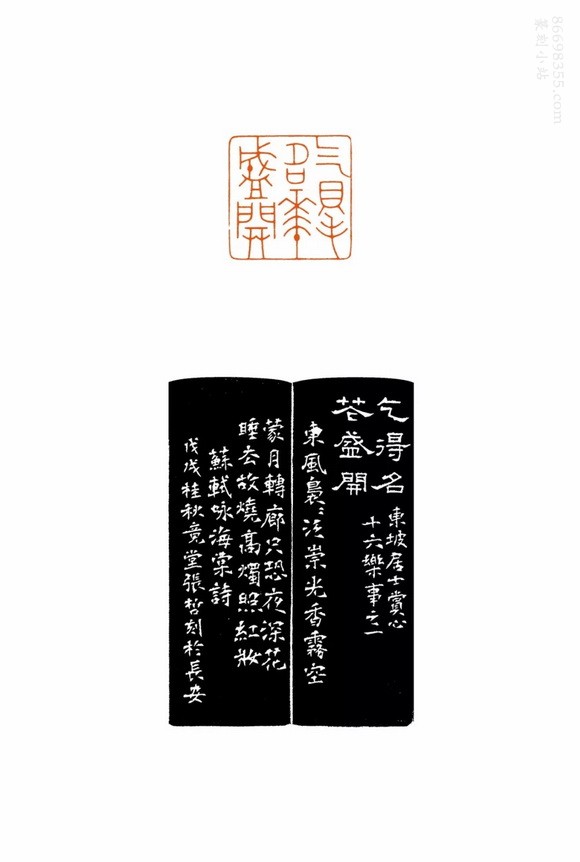 86698355.com
篆刻小站
乞得名花盛開
乞得名
苍盛開
東坡居士賞心
十六樂事之一
東風裊〻泛崇光香霧空
蒙月轉廊只恐夜深花
睡去故燒高燭照紅妝
蘇軾咏海棠詩
戊戌桂秋竟堂張哲刻於長安